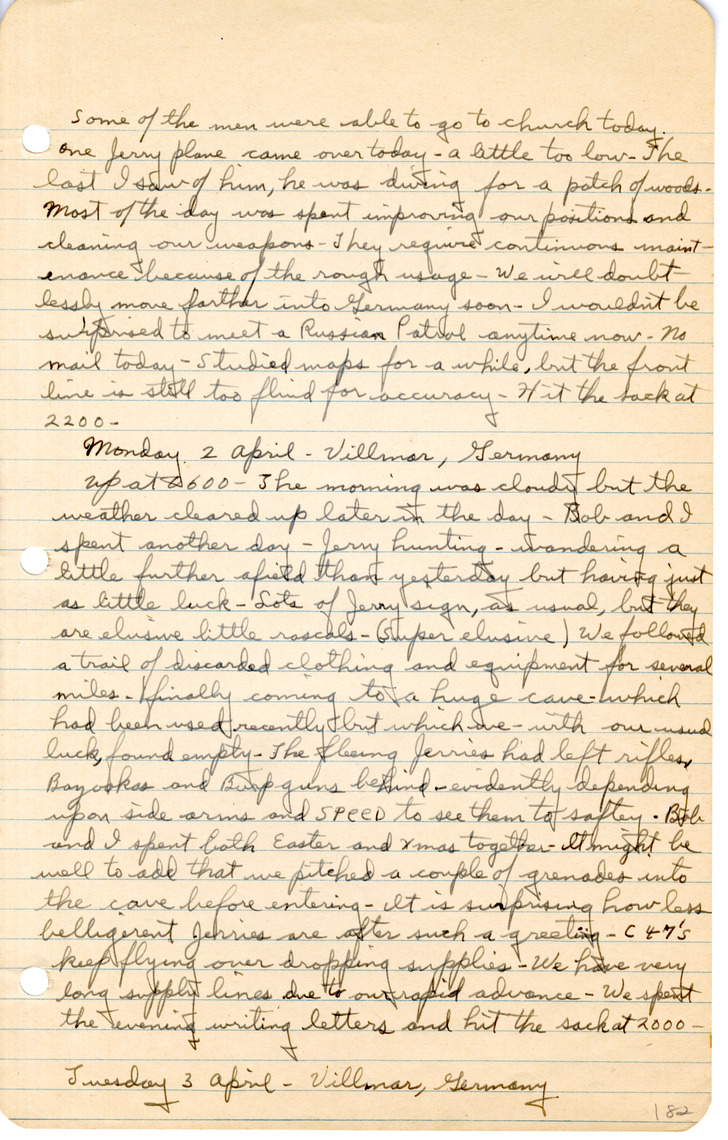 Some of the men were able to go to church today.
One Jerry plane came over today - a little too low - The
last I saw of him, he was diving for a patch of woods -
Most of the day was spent improving our positions and
cleaning our weapons - They require continuous maint-
enance because of the rough usage - We will doubt
lessly move farther into Germany soon - I wouldn't be
surprised to meet a Russian Patrol anytime now - No
mail today - Studied maps for a while, but the front
line is still too fluid for accuracy - Hit the sack at
2200 -
Monday 2 April - Villmar, Germany
Up at 0600 - The morning was cloudy but the
weather cleared up later in the day - Bob and I
spent another day - Jerry hunting - wandering a
little further afield than yesterday but having just
as little luck - Lots of Jerry sign, as usual, but they
are elusive little rascals - (Super elusive) We followed
a trail of discarded clothing and equipment for several
miles - finally coming to a huge cave - which
had been used recently but which we - with our usual
luck, found empty - The fleeing Jerries had left rifles,
Bazookas and Burp guns behind - evidently depending
upon side arms and SPEED to see them to saftey. Bob
and I spent both Easter and Xmas together - It might be
well to add that we pitched a couple of grenades into
the cave before entering - It is surprising how less
belligerent Jerries are after such a greeting - C 47's
keep flying over dropping supplies - We have very
long supply lines due to our rapid advance - We spent
the evening writing letters and hit the sack at 2000 -
Tuesday 3 April - Villmar, Germany
182